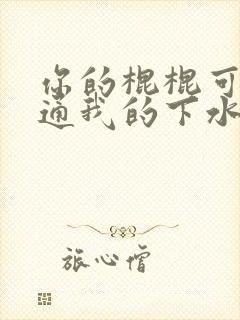 你的棍棍可
通我的下水
旅心僧